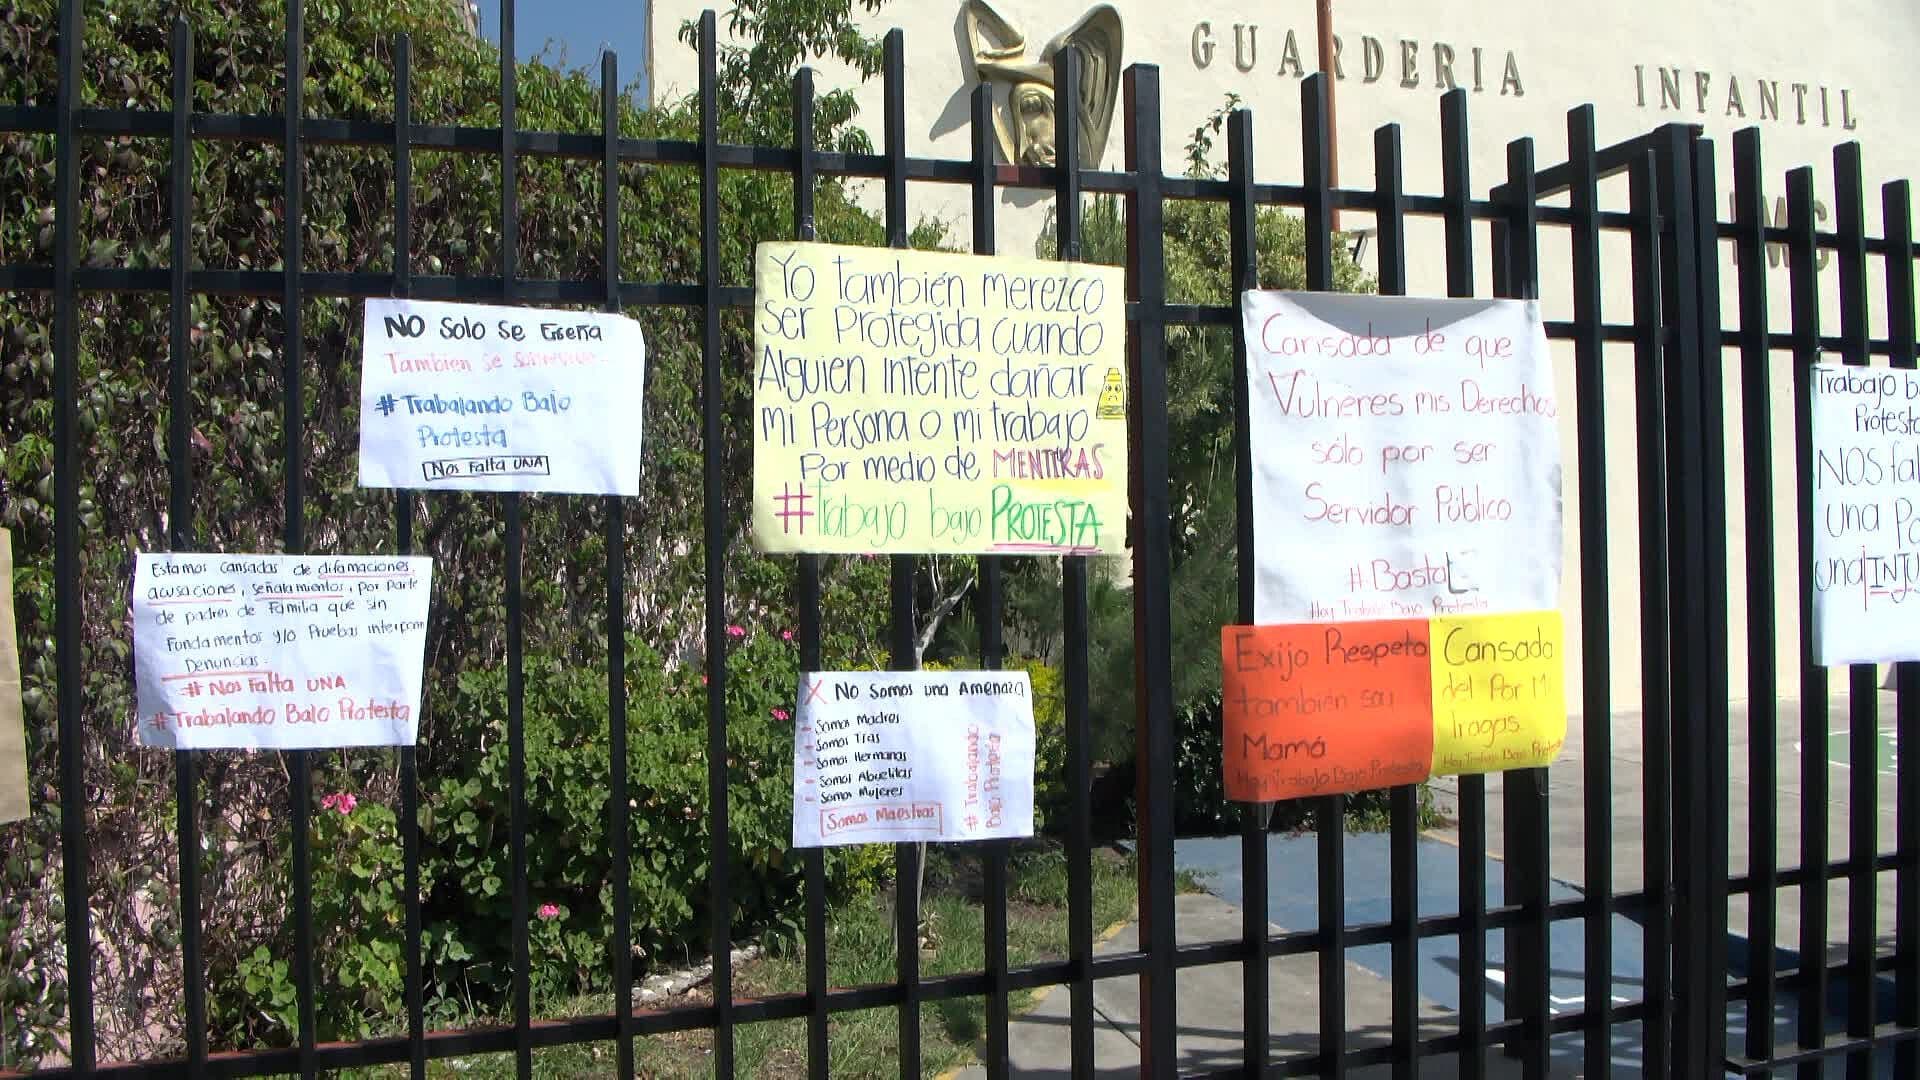 GUARDERIA INFANTIL
IMSS
NO Solo Se Enseña
Tambien se sobrevive
# Trabajando Bajo
Protesta
Nos Falta UNA
Yo también merezco
Ser Protegida cuando
Alguien intente dañar
mi Persona o mi trabajo
Por medio de MENTIRAS
#Trabajo bajo PROTESTA
Cansada de que
Vulneres mis Derechos
sólo por ser
Servidor Público
#Basta
Hoy Trabajo Bajo Protesta
Trabajo b
Protesta
NOS fal
una
una INJU
Estamos cansadas de difamaciones,
acusaciones, señalamientos, por parte
de padres de Familia que sin
Fundamentos y/o Pruebas interponen
Denuncias.
# Nos Falta UNA
# Trabajando Bajo Protesta
X No Somos una Amenaza
- Somos Madres
- Somos Tias
- Somos Hermanas
- Somos Abuelitas
- Somos Mujeres
Somos Maestras
# Trabajando
Bajo Protesta
Exijo Respeto
también soy
Mamá
Hoy Trabajo Bajo Protesta
Cansada
del Por Mi
tragas
Hoy Trabajo Bajo Protesta